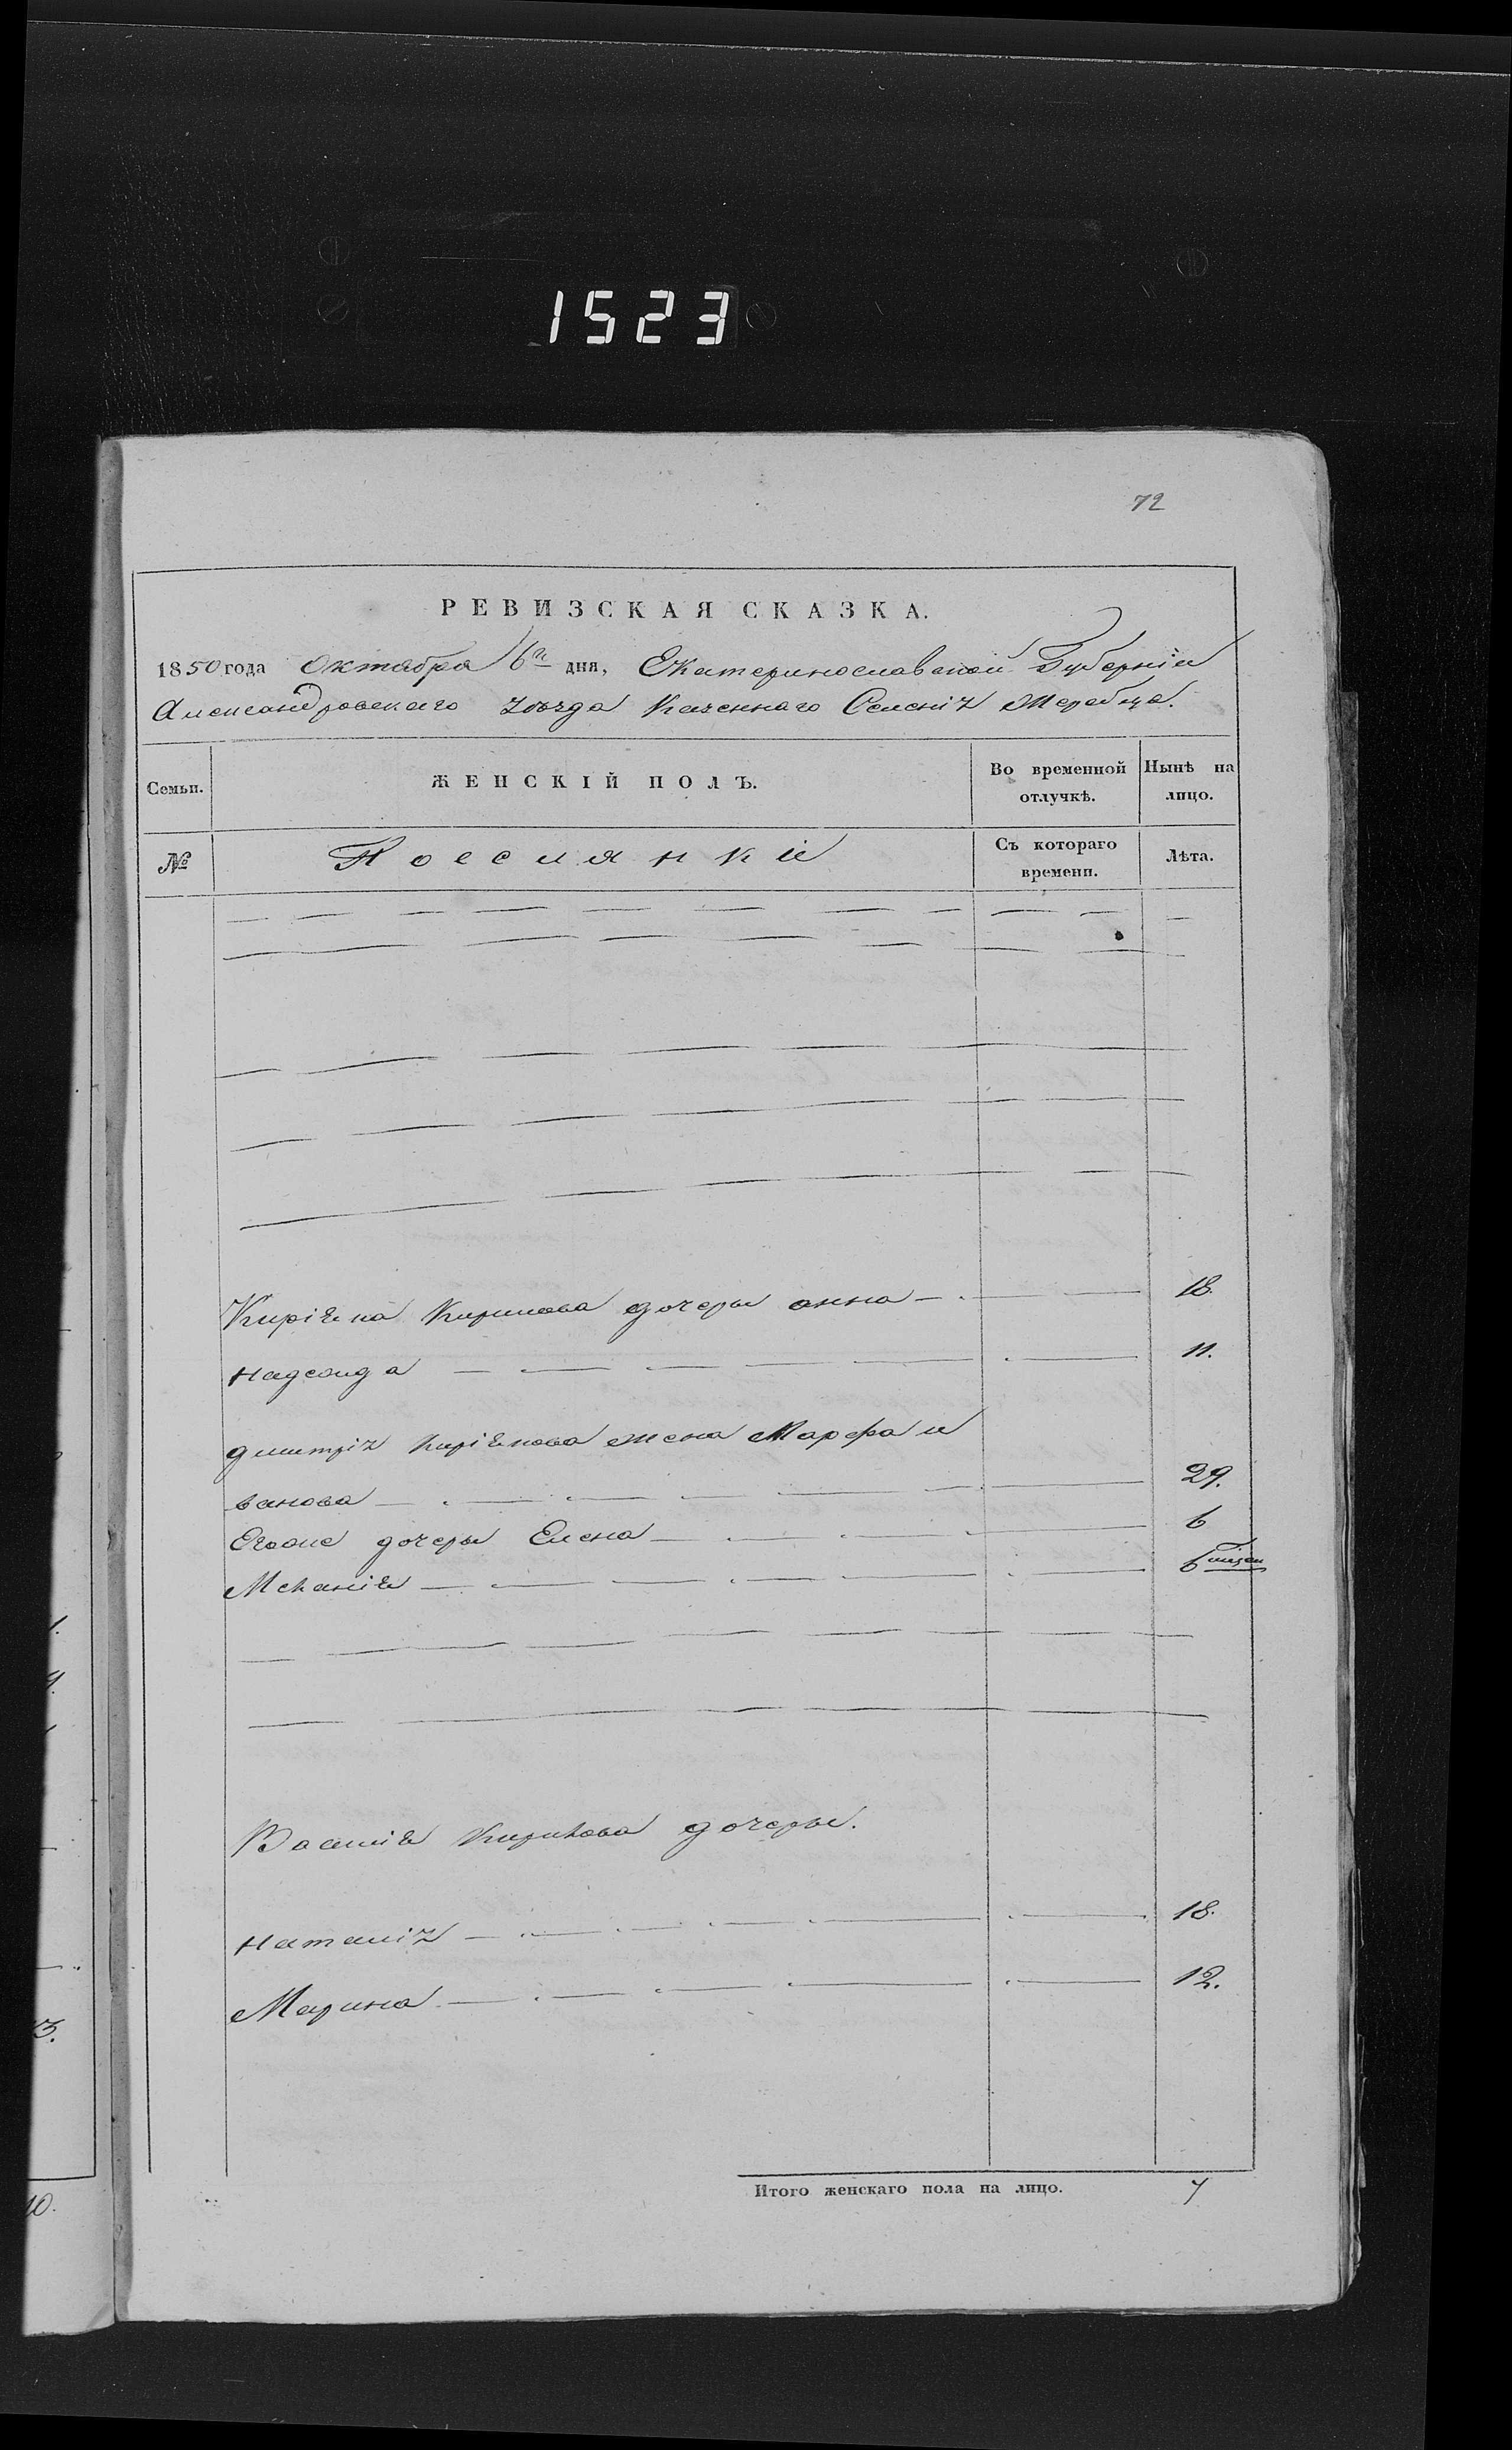 1523
72
РЕВИЗСКАЯ СКАЗКА.
1850 года Октября 6го дня, Екатеринославской Губерніи
Александровскаго уѣзда Казеннаго Селенія Жеребца.
Семьи.
ЖЕНСКІЙ ПОЛЪ.
Во временной отлучкѣ.
Нынѣ на лицо.
№
Поселянки
Съ котораго времени.
Лѣта.
Киріяка Кирикова дочеры анна 18.
надежда 11.
дмитрія Киріякова жена Марфа и
ванова 29.
Егоже дочеры Елена 6
Меланія 6
Василія Кирикова дочеры.
наталія 18.
Марина 12.
Итого женскаго пола на лицо. 7
1.
3.
10.